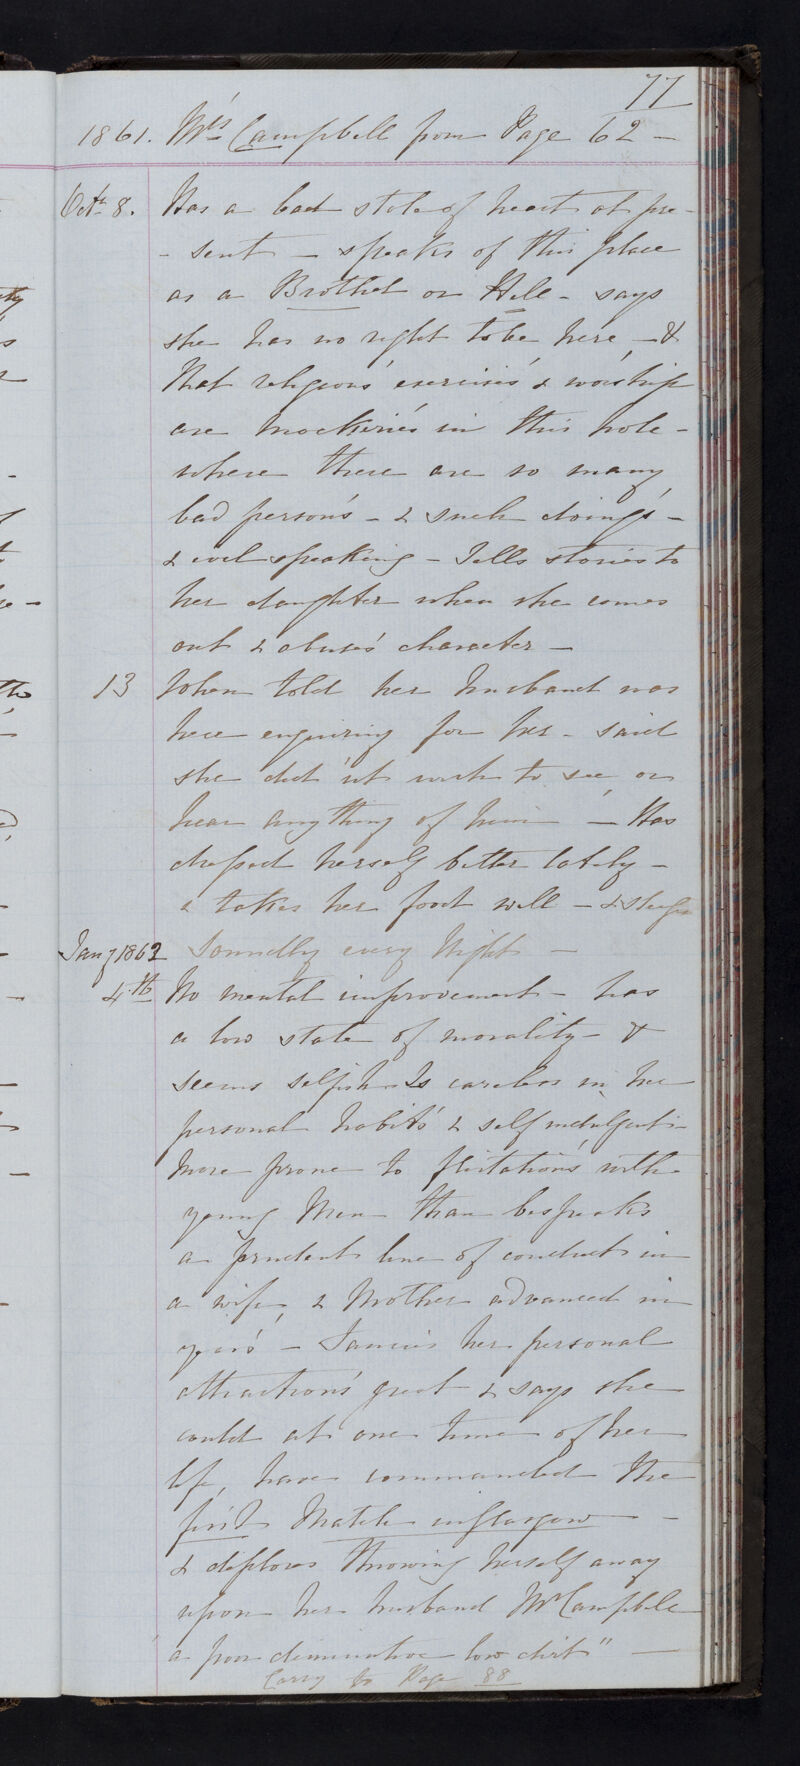 77
1861. Mrs Campbell from Page 62 —
Oct 8. Has a bad state of heart at pre-
- sent — speaks of this place
as a Brothel or Hell - says
she has no right to be here — &
that religious exercises & worship
are mockeries in this hole -
where there are so many
bad person's - & such doing's -
& evil speaking - Tells stories to
her daughter when she comes
out & abuses character —
13 When told her husband was
here enquiring for her - said
she did'nt wish to see, or
hear anything of him — Has
dressed herself better lately -
& takes her food well - & sleeps
Jany 1862 Soundly every Night —
4th No mental improvement - has
a low state of morality - &
seems selfish. Is careless in her
personal habits & self indulgent -
More prone to flirtations with
young Men - than bespeaks
a prudent line of conduct in
a wife, & Mother advanced in
years - Fancies her personal
attractions great & says she
could at one time of her
life, have commanded the
first Match in Glasgow —
& deplores throwing herself away
upon her husband Mr Campbell
a poor diminutive low dirt" —
Carry to Page 88